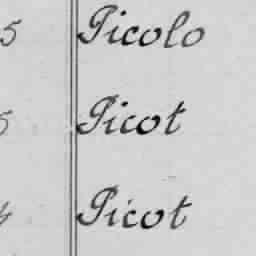 5 Picolo
5 Picot
4 Picot